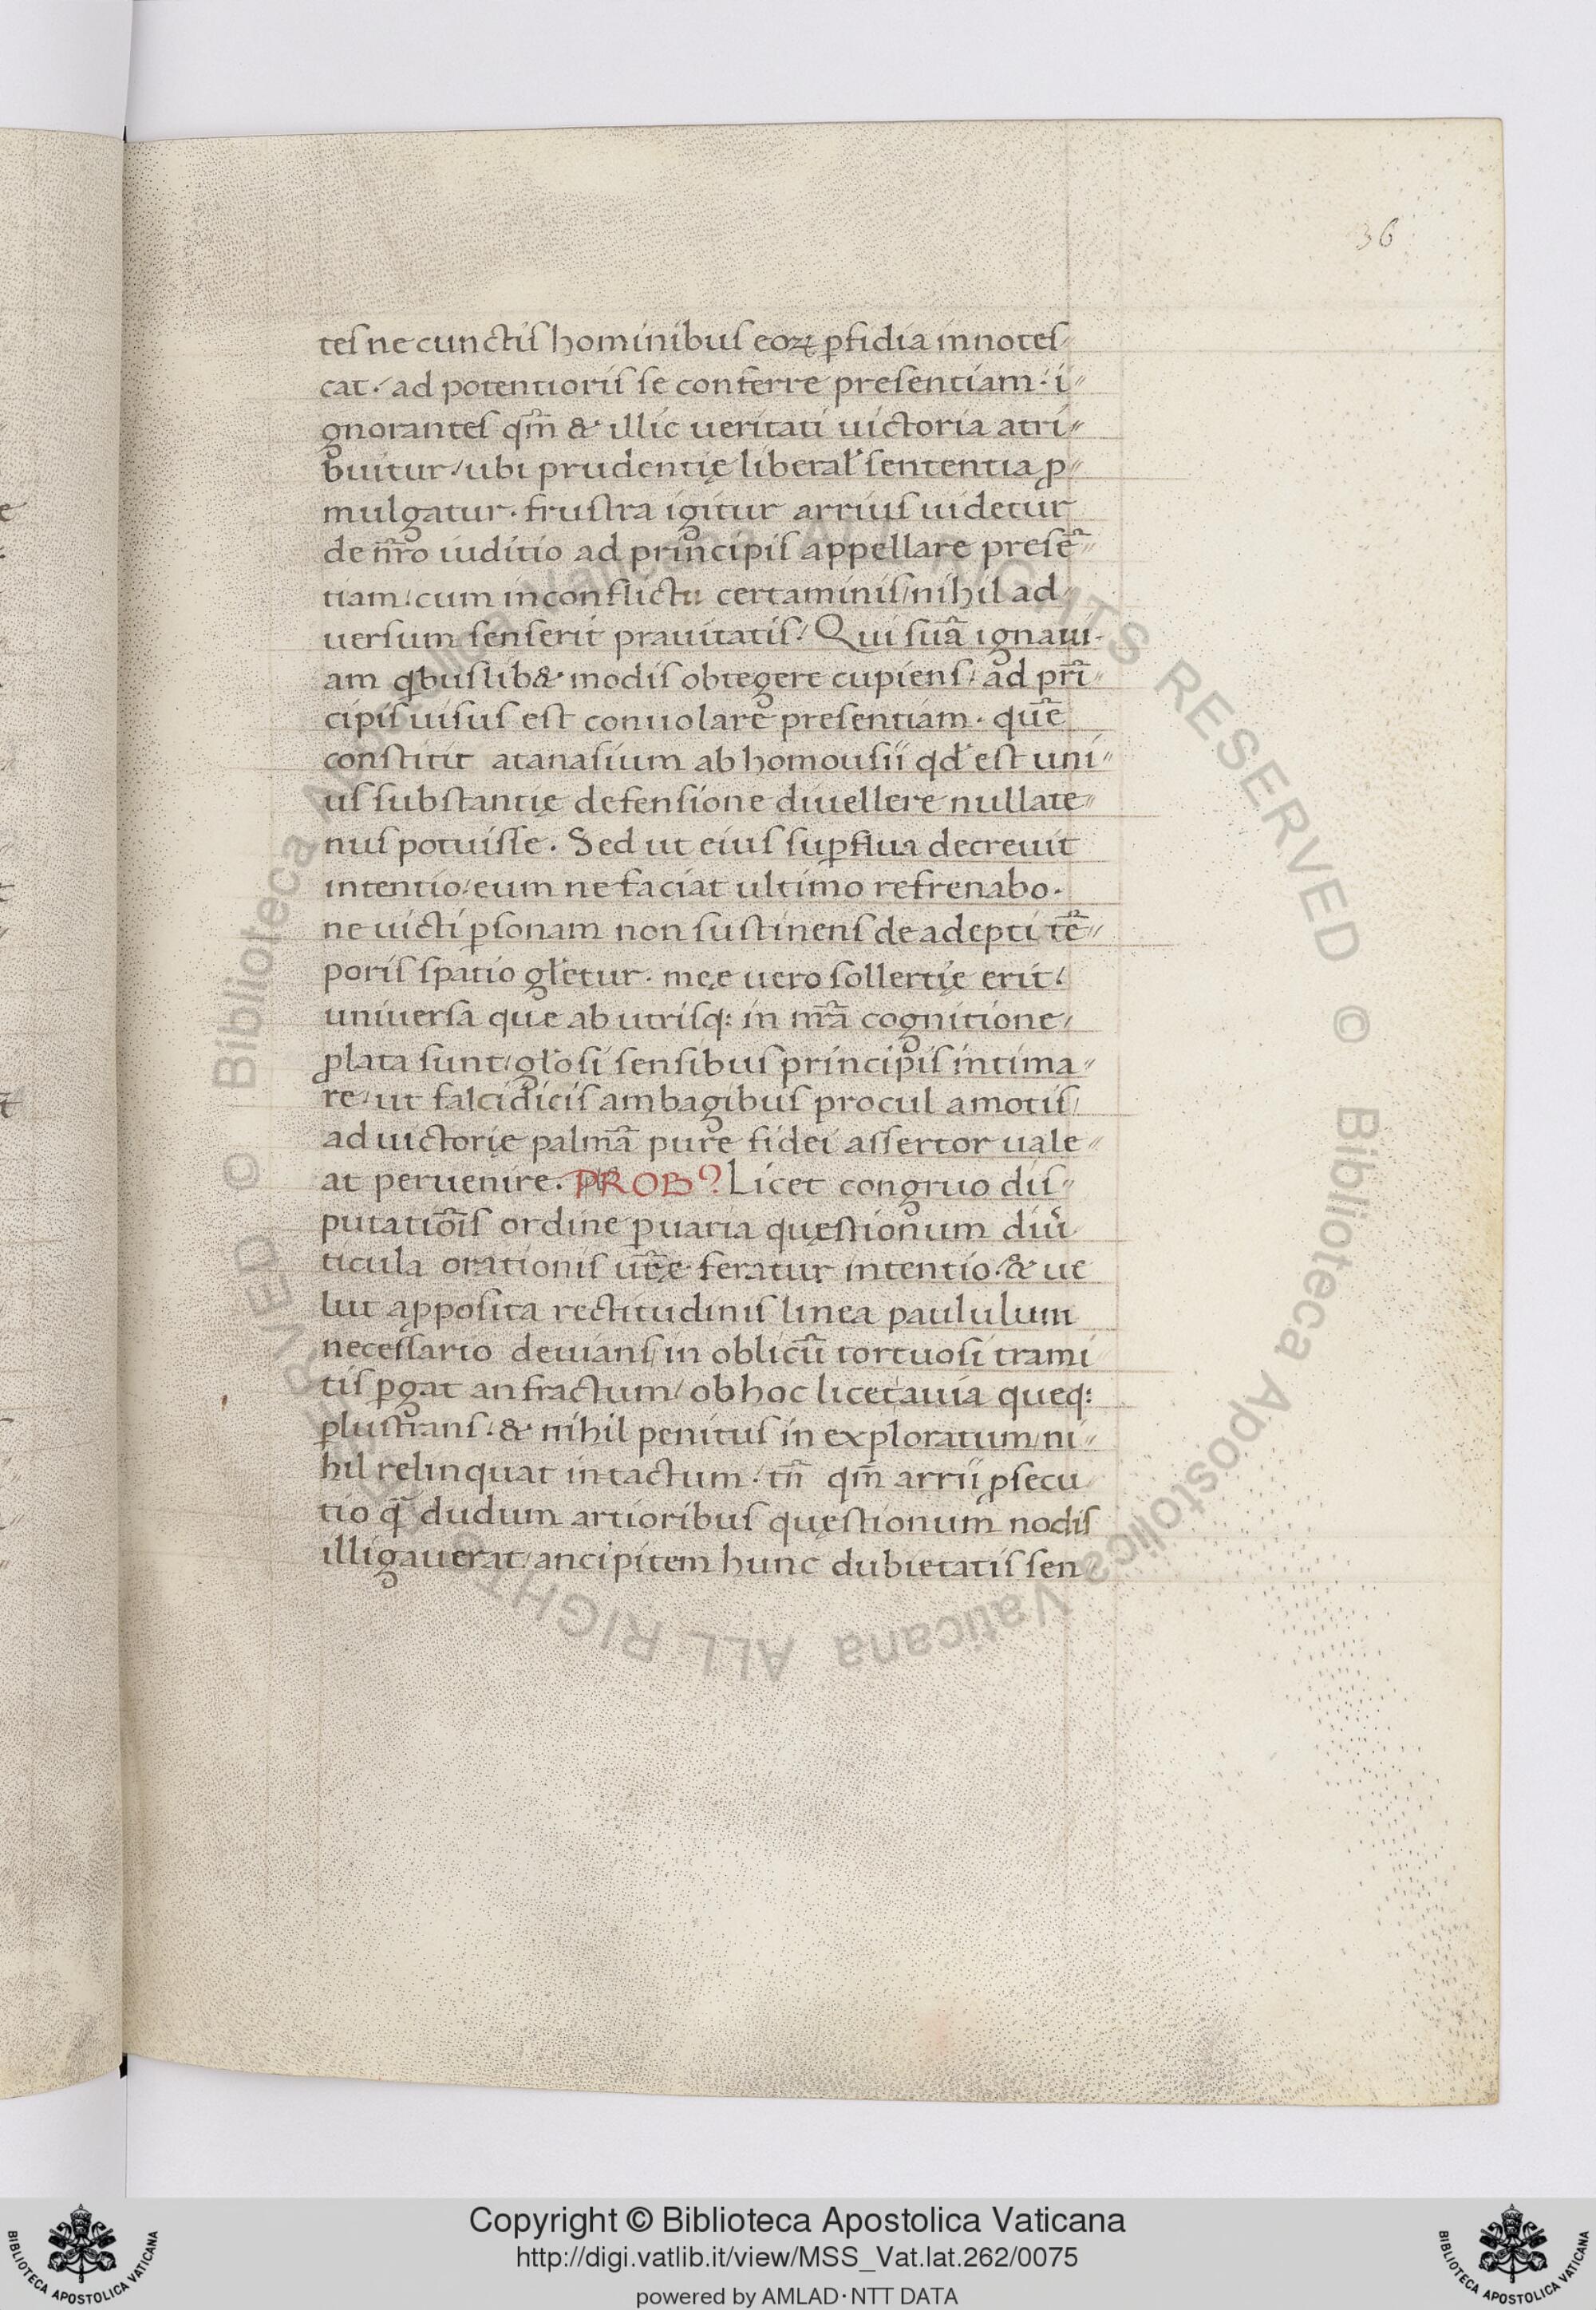 36
tes ne cunctis hominibus eoꝝ ꝑfidia innotes-
cat. ad potentioris se conferre presentiam. i-
gnorantes qm̄ & illic ueritati uictoria atri-
buitur/ ubi prudentię liberal' sententia ꝓ-
mulgatur. frustra igitur arrius uidetur
de nr̄o iuditio ad principis appellare presē-
tiam/ cum inconflictu certaminis/ nihil ad-
uersum senserit prauitatis/ Qui suā ignaui-
am qbuslib& modis obtegere cupiens/ ad prī-
cipis uisus est conuolare presentiam. quē
constitit atanasium ab homousii qd' est uni-
us substantię defensione diuellere nullate-
nus potuisse. Sed ut eius suꝑflua decreuit
intentio/ eum ne faciat ultimo refrenabo.
ne uicti ꝑsonam non sustinens de adepti tē-
poris spatio gl'etur. meę uero sollertię erit/
uniuersa quę ab utrisq: in nr̄ā cognitione/
ꝓlata sunt/ gl'osi sensibus principis intima-
re/ ut falcidicis ambagibus procul amotis/
ad uictorię palmā pure fidei assertor uale-
at peruenire. PROBꝰ Licet congruo dis-
putatiōis ordine ꝑ uaria quęstionum diu'-
ticula orationis ur̄ę feratur intentio. & ue
lut apposita rectitudinis linea paululum
necessario deuians/ in oblicū tortuosi trami
tis ꝑgat anfractum/ ob hoc licet auia queq:
ꝑlustrans/ & nihil penitus in exploratum/ ni-
hil relinquat intactum/ tn̄ qm̄ arrii ꝑsecu
tio q̄ dudum artioribus quęstionum nodis
illigauerat/ ancipitem hunc dubietatis sen-
© Biblioteca Apostolica Vaticana ALL RIGHTS RESERVED © Biblioteca Apostolica Vaticana ALL RIGHTS RESERVED
Copyright © Biblioteca Apostolica Vaticana
http://digi.vatlib.it/view/MSS_Vat.lat.262/0075
powered by AMLAD·NTT DATA
BIBLIOTECA APOSTOLICA VATICANA
BIBLIOTECA APOSTOLICA VATICANA